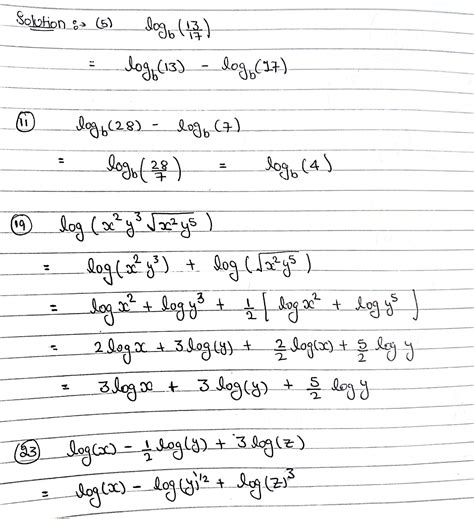 Solution :→ (5) log_b(13/17)
= log_b(13) - log_b(17)
(11) log_b(28) - log_b(7)
= log_b(28/7) = log_b(4)
(19) log(x²y³√(x²y⁵))
= log(x²y³) + log(√(x²y⁵))
= logx² + logy³ + 1/2[logx² + logy⁵]
= 2logx + 3log(y) + 2/2 log(x) + 5/2 log y
= 3logx + 3log(y) + 5/2 log y
(23) log(x) - 1/2 log(y) + 3log(z)
= log(x) - log(y)^1/2 + log(z)³